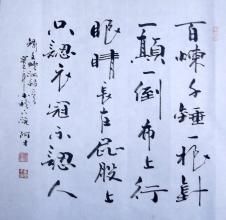 百炼千锤一根针
一颠一倒布上行
眼睛长在屁股上
只认衣冠不认人